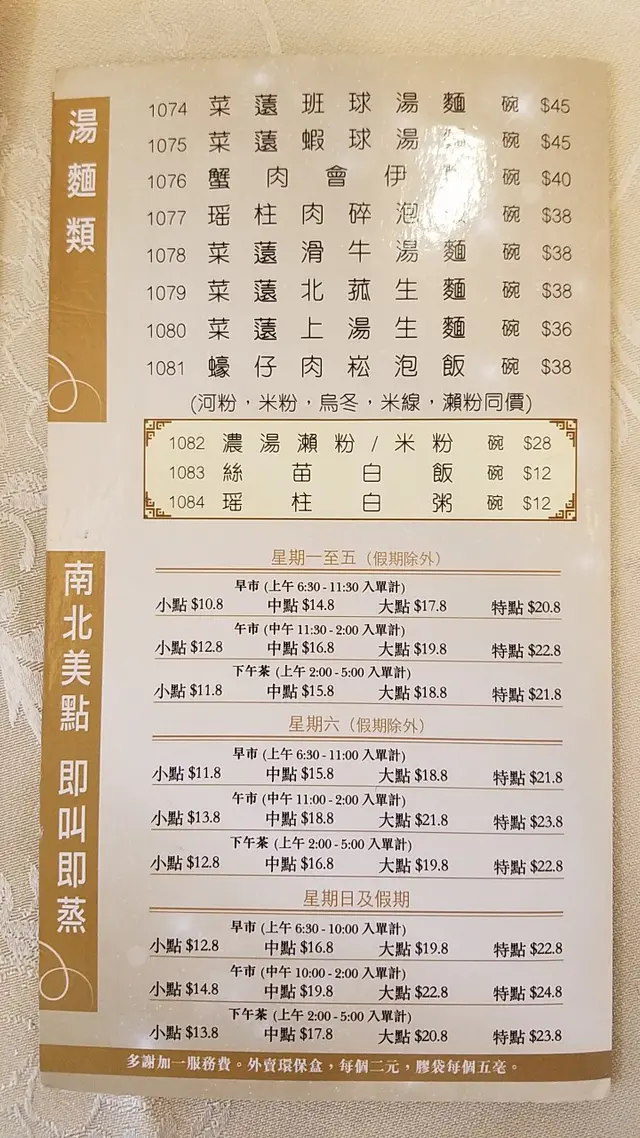 湯麵類
1074 菜薳班球湯麵 碗 $45
1075 菜薳蝦球湯 碗 $45
1076 蟹肉會伊 碗 $40
1077 瑶柱肉碎泡 碗 $38
1078 菜薳滑牛湯麵 碗 $38
1079 菜薳北菰生麵 碗 $38
1080 菜薳上湯生麵 碗 $36
1081 蠔仔肉崧泡飯 碗 $38
(河粉，米粉，烏冬，米線，瀨粉同價)
1082 濃湯瀨粉/米粉 碗 $28
1083 絲苗白飯 碗 $12
1084 瑶柱白粥 碗 $12
南北美點 即叫即蒸
星期一至五 (假期除外)
早市 (上午 6:30 - 11:30 入單計)
小點 $10.8 中點 $14.8 大點 $17.8 特點 $20.8
午市 (中午 11:30 - 2:00 入單計)
小點 $12.8 中點 $16.8 大點 $19.8 特點 $22.8
下午茶 (上午 2:00 - 5:00 入單計)
小點 $11.8 中點 $15.8 大點 $18.8 特點 $21.8
星期六 (假期除外)
早市 (上午 6:30 - 11:00 入單計)
小點 $11.8 中點 $15.8 大點 $18.8 特點 $21.8
午市 (中午 11:00 - 2:00 入單計)
小點 $13.8 中點 $18.8 大點 $21.8 特點 $23.8
下午茶 (上午 2:00 - 5:00 入單計)
小點 $12.8 中點 $16.8 大點 $19.8 特點 $22.8
星期日及假期
早市 (上午 6:30 - 10:00 入單計)
小點 $12.8 中點 $16.8 大點 $19.8 特點 $22.8
午市 (中午 10:00 - 2:00 入單計)
小點 $14.8 中點 $19.8 大點 $22.8 特點 $24.8
下午茶 (上午 2:00 - 5:00 入單計)
小點 $13.8 中點 $17.8 大點 $20.8 特點 $23.8
多謝加一服務費。外賣環保盒，每個二元，膠袋每個五毫。